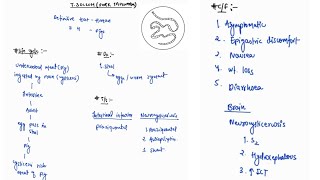 T. SOLIUM (PORK TAPEWORM)
Definitive host - Human
I.H. - Pig
* Life cycle
undercooked meat (pig)
ingested by man (cysticerci)
Intestine
Adult
egg pass in
Stool
Pig
Cysticerci
* Dx:-
1. Stool
egg / worm segment
* T/t
Intestinal infection
Praziquantel
Neurocysticercosis
1. Praziquantel
2. Antiepileptic
3. Shunt
* C/F:-
1. Asymptomatic
2. Epigastric discomfort
3. Nausea
4. wt. loss
5. Diarrhoea
Brain
Neurocysticercosis
1. Sz
2. Hydrocephalous
3. ↑ ICT